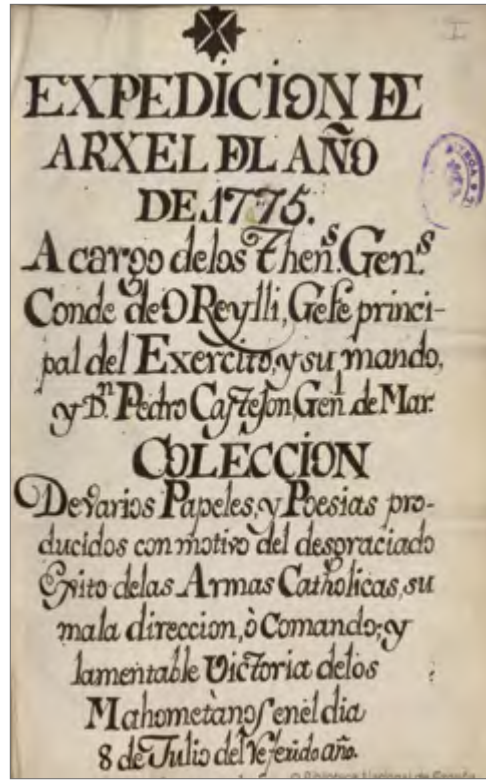 I
EXPEDICION DE
ARXEL DEL AÑO
DE 1775.
A cargo delos Then.s Gen.s
Conde de O Reylli, Gefe princi-
pal del Exercito, y su mando,
y D.n Pedro Castejon, Gen.l de Mar.
COLECCION
De varios Papeles, y Poesias pro-
ducidos con motivo del desgraciado
Exito delas Armas Catholicas, su
mala direccion, ò Comando; y
lamentable Victoria delos
Mahometànos en el dia
8 de Julio del referido año.
Biblioteca Nacional de España